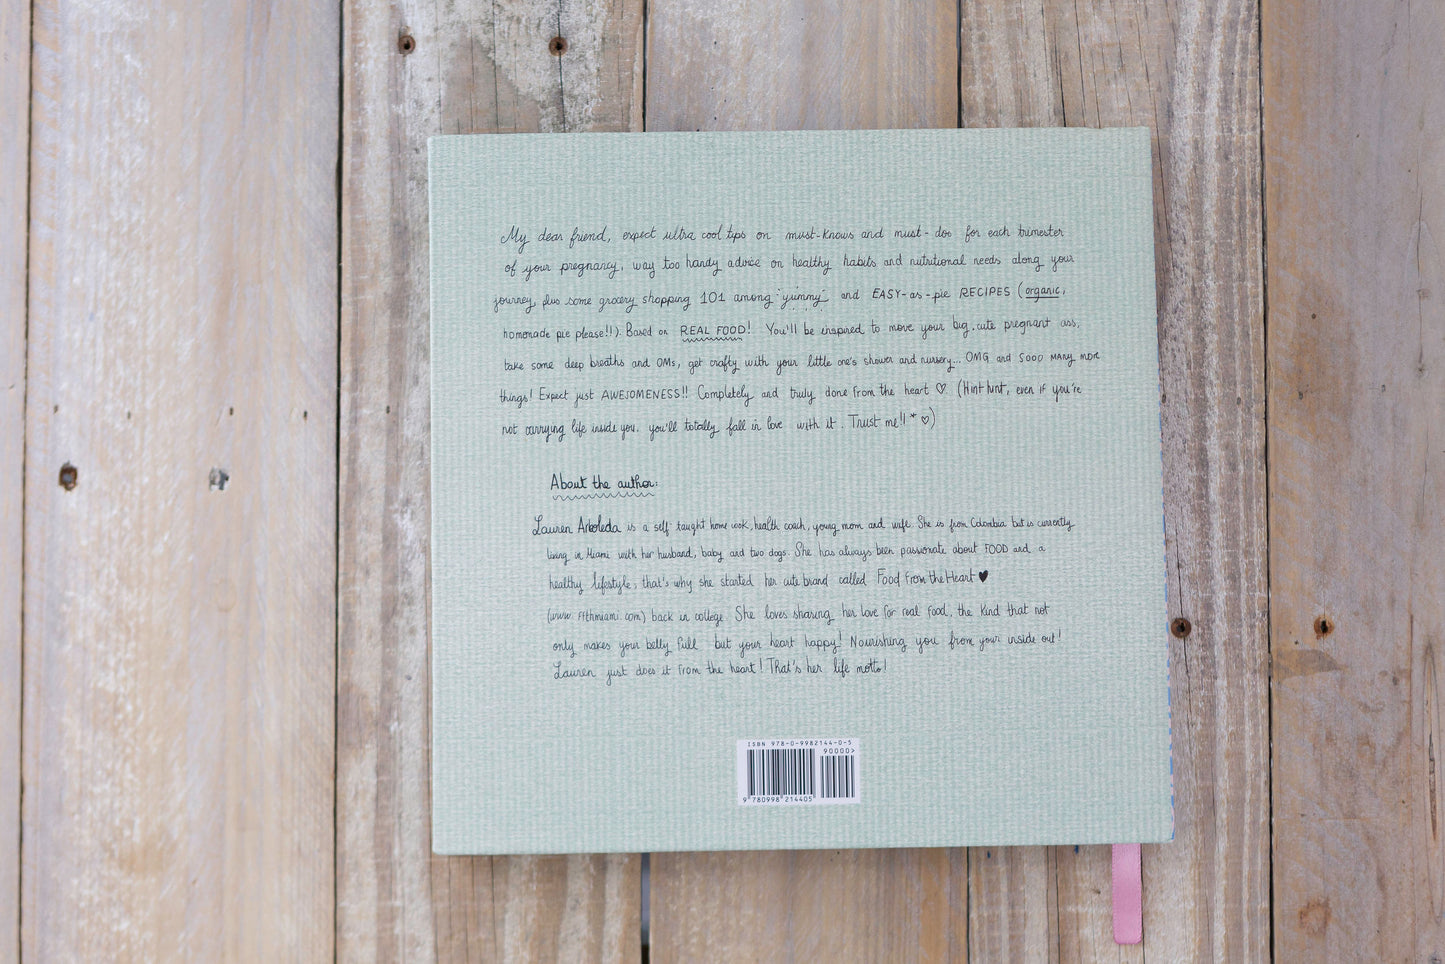 My dear friend, expect ultra cool tips on must-knows and must-dos for each trimester
of your pregnancy, way too handy advice on healthy habits and nutritional needs along your
journey, plus some grocery shopping 101 among "yummy" and EASY-as-pie RECIPES (organic,
homemade pie please!!). Based on REAL FOOD! You'll be inspired to move your big, cute pregnant ass,
take some deep breaths and OMs, get crafty with your little one's shower and nursery... OMG and SOOO MANY MORE
things! Expect just AWESOMENESS!! Completely and truly done from the heart ♡. (Hint hint, even if you're
not carrying life inside you, you'll totally fall in love with it. Trust me!! * ♡)
About the author:
Lauren Arboleda is a self-taught home cook, health coach, young mom and wife. She is from Colombia but is currently
living in Miami with her husband, baby and two dogs. She has always been passionate about FOOD and a
healthy lifestyle, that's why she started her cute brand called Food From the Heart ♥
(www.ffthmiami.com) back in college. She loves sharing her love for real food, the kind that not
only makes your belly full but your heart happy! Nourishing you from your inside out!
Lauren just does it from the heart! That's her life motto!
ISBN 978-0-9982144-0-5
90000>
9 780998 214405